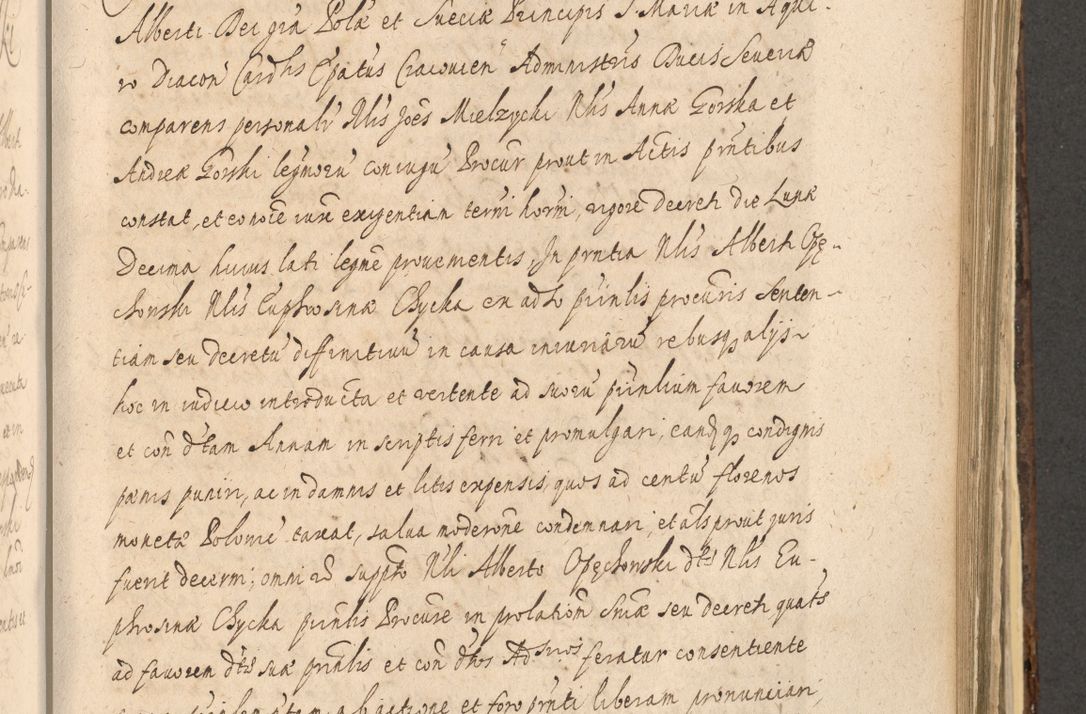 Alberti Dei grã Polæ et Sueciæ Principis S. Mariæ in Aqui-
ro Diacon̄ Cardlis Epatus Cracovien̄ Administris Ducis Severiæ
comparens personalr̄ Nlis Joẽs Mielzycki Nlis Annæ Gorska et
Andreæ Gorski legmorū coniugū Procur prout in Actis pn̄tibus
constat, et eo noĩe iure exigentiam termī horñi, vigore decreti die Lunæ
Decima huius lati legmẽ provenientis, In pn̄tia Nlis Alberti Opę-
chowski Nlis Euphrosinæ Chycka ex adso prin̄lis procuris senten-
tiam seu decretū diffinitivū in causa iniuriarū rebusq₃ alijs
hoc in iudicio introducta et vertente ad suorū prin̄lium favorem
et con̄ dtam Annam in scriptis ferri et promulgari, eandq₃ condignis
pœnis puniri, ac in damnis et litis expensis, quos ad centū florenos
monetæ Poloniē taxat, salva moderone condemnari, et als prout iuris
fuerit decerni; omni eo suppto Nli Alberto Opęchowski dtæ Nlis Eu-
phrosinæ Chycka prin̄lis Procure in prolation̄ sniæ seu decreti, quats
ad favorem dtæ suæ prin̄lis et con̄ dtos Adsuos feratur consentiente
et foro pn̄ti liberam pronunciari,